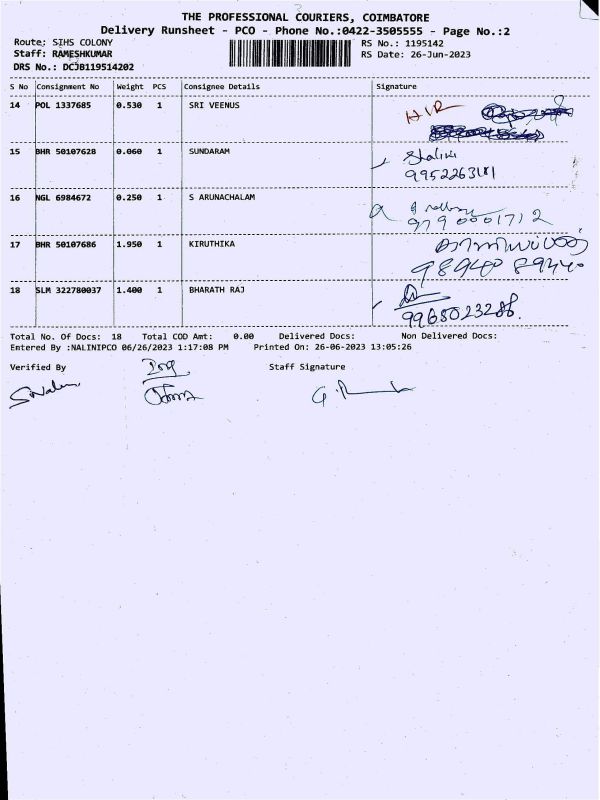 THE PROFESSIONAL COURIERS, COIMBATORE
Delivery Runsheet - PCO - Phone No.:0422-3505555 - Page No.:2
Route; SIHS COLONY RS No.: 1195142
Staff: RAMESHKUMAR RS Date: 26-Jun-2023
DRS No.: DCJB119514202
S No Consignment No Weight PCS Consignee Details Signature
14 POL 1337685 0.530 1 SRI VEENUS
15 BHR 50107628 0.060 1 SUNDARAM Shalini
9952263181
16 NGL 6984672 0.250 1 S ARUNACHALAM
9790001712
17 BHR 50107686 1.950 1 KIRUTHIKA
98940 89440
18 SLM 322780037 1.400 1 BHARATH RAJ
9965023286.
Total No. Of Docs: 18 Total COD Amt: 0.00 Delivered Docs: Non Delivered Docs:
Entered By :NALINIPCO 06/26/2023 1:17:08 PM Printed On: 26-06-2023 13:05:26
Verified By Staff Signature